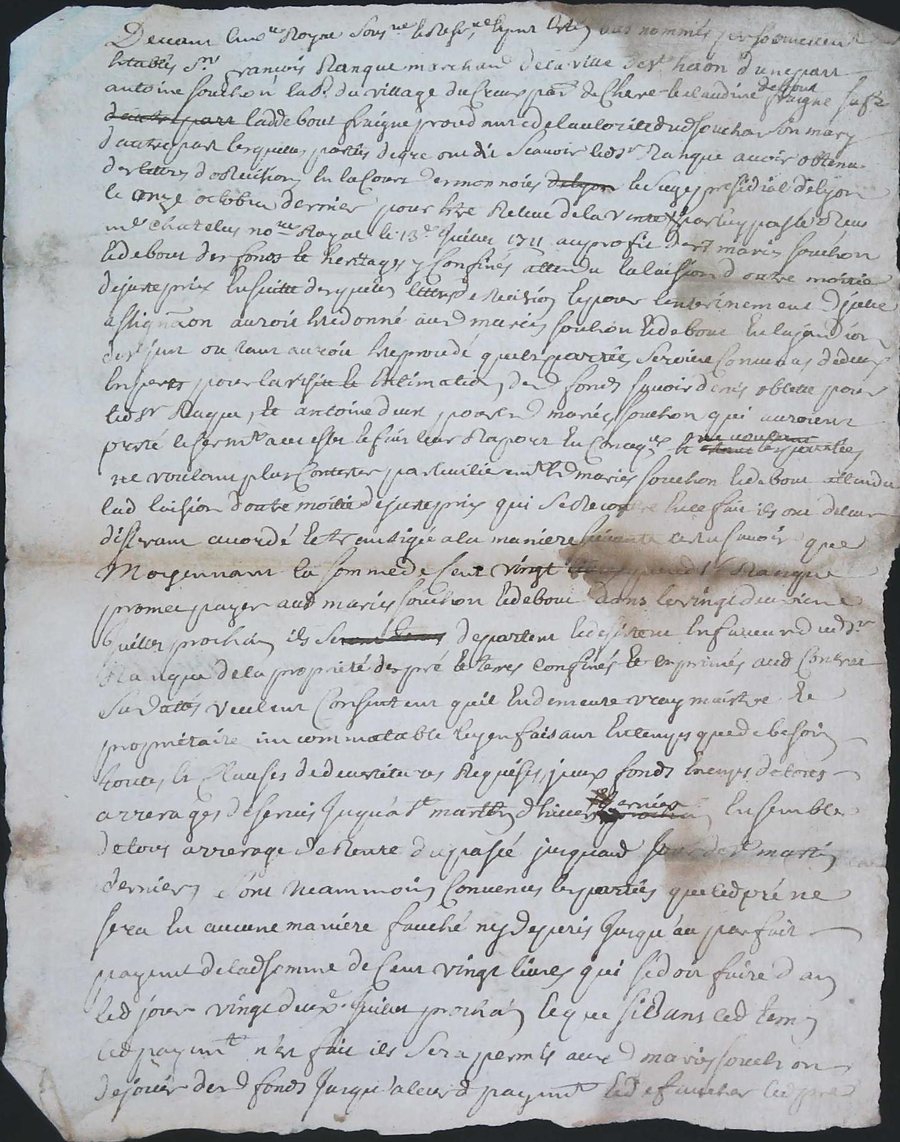 Devant le no.re Royal Sous.ne
establis Sr francois Ranque marchand de la ville de St haon d'une part
antoine souchon lab.r du village du Creux par. de Chere et claudine debout fraigne sa fe
d'autre part lad debout fraigne proced.nt de l'autorité dud souchon son mary
d'autre part lesquelles parties de gre ont dit scavoir led Sr Ranque avoir obtenu
des lettres de rescision en la Cour des monnoies de lyon le siege presidial de lyon
le onze octobre dernier pour estre Releve de la vente par luy passée Recue
me Chatelus no.re Royal le 13e Juillet 1711 au profit des mariés souchon
et debout des fonds et heritages y confinés attendu la laision d'outre moitié
de juste prix ensuitte desquelles lettres de Recision et pour l'enterinement d'icelle
assignaon auroit esté donné aud mariés souchon et debout en la jurid.ion
de St jean ou tant auroit esté procedé que les parties seroient convenus de deux
Experts pour la visitte et Estimation desd fonds scavoir denis pour
led Sr Ranque, et antoine deux pour lesd mariés souchon qui auroient
presté le serm.t a cet effet et fait leur Raport en conseq.ce et ne voulant les parties
ne voulant plus Contester particulierem.t led mariés souchon et debout attendu
lad laision d'outre moitié de juste prix qui se Rencontre en ce fait ils ont de leur
different accordé et transigé a la maniere suivante c'est a scavoir que
Moyennant la somme de Cent vingt livres que led Sr Ranque
promet payer aud mariés souchon et debout dans le vingt deuxieme
Juillet prochain ils seront tenus departent et desistent en faveur dud Sr
Ranque de la proprieté des pré et terres confinés et exprimés aud Contrat
Sus datté veulent Consentent qu'il en demeure vray maistre et
proprietaire incommutable luy en faisant en temps que de besoin
toutes les Clauses de devestitures Requises, iceux fonds Exemps de tous
arrerages de servis jusqu'a St martin d'hiver dernier prochain Ensemble
de tous arrerage de Rente du passé jusquaud jour de St martin
dernier, sont neammoins Convenues les parties que led pré ne
sera en aucune maniere fauché ny depris jusqu'au parfait
paym.t de lad somme de Cent vingt livres qui se doit faire dans
led jour vingt deux.e Juillet prochain et que si dans led temps
led paym.t n'est fait ils sera permis auxd mariés souchon
de jouir desd fonds jusqu'aud paym.t et de faucher led pré